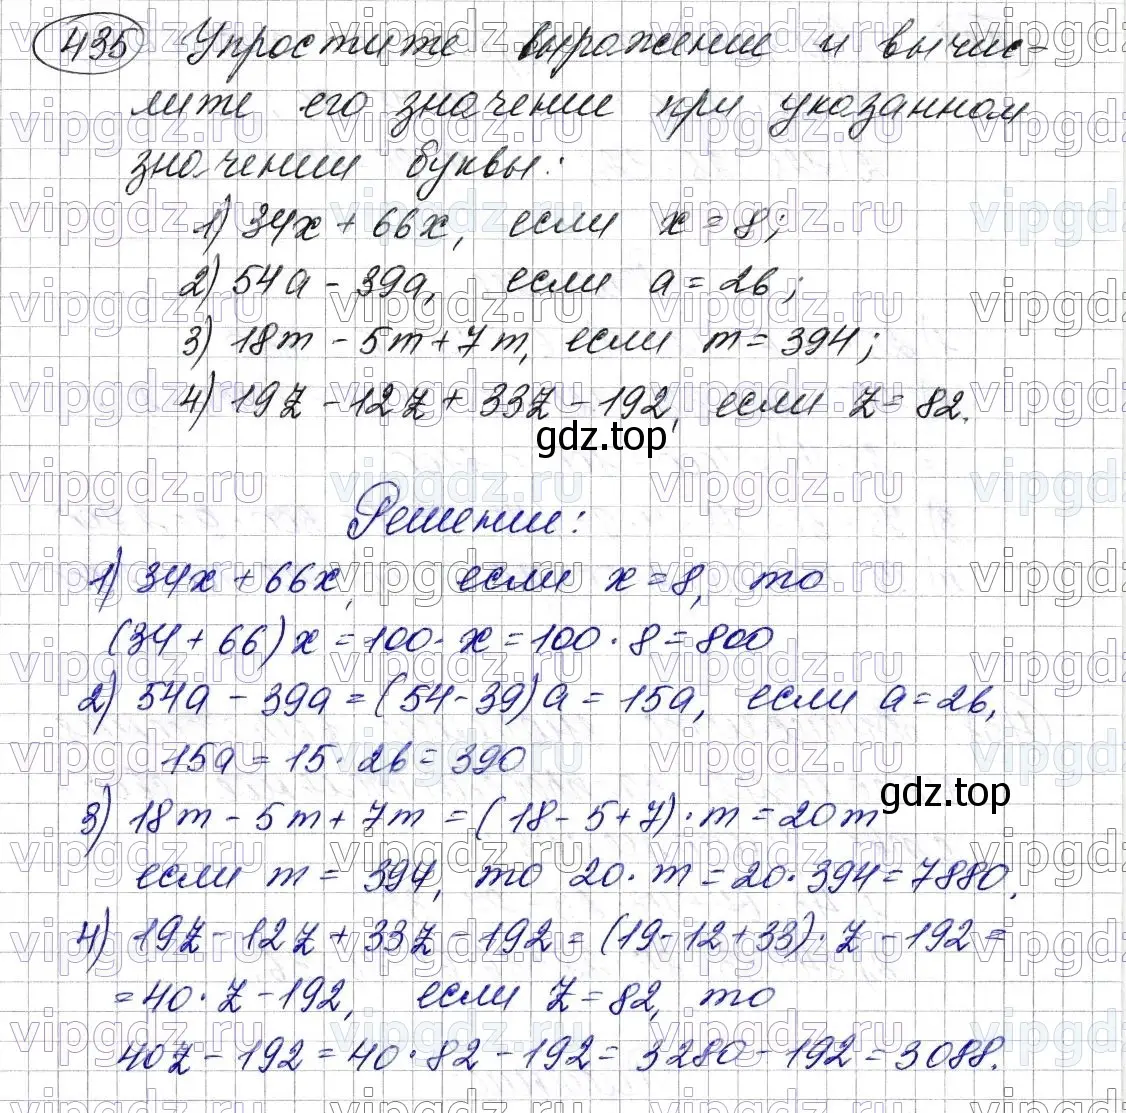 435 Упростите выражение и вычис-
лите его значение при указанном
значении буквы:
1) 34x + 66x, если x = 8;
2) 54a - 39a, если a = 26;
3) 18m - 5m + 7m, если m = 394;
4) 19z - 12z + 33z - 192, если z = 82.
gdz.top
Решение:
1) 34x + 66x, если x = 8, то
(34 + 66)x = 100 · x = 100 · 8 = 800
2) 54a - 39a = (54 - 39)a = 15a, если a = 26,
15a = 15 · 26 = 390
3) 18m - 5m + 7m = (18 - 5 + 7) · m = 20m
gdz.top
если m = 394, то 20 · m = 20 · 394 = 7880.
4) 19z - 12z + 33z - 192 = (19 - 12 + 33) · z - 192 =
= 40 · z - 192, если z = 82, то
40z - 192 = 40 · 82 - 192 = 3280 - 192 = 3088.